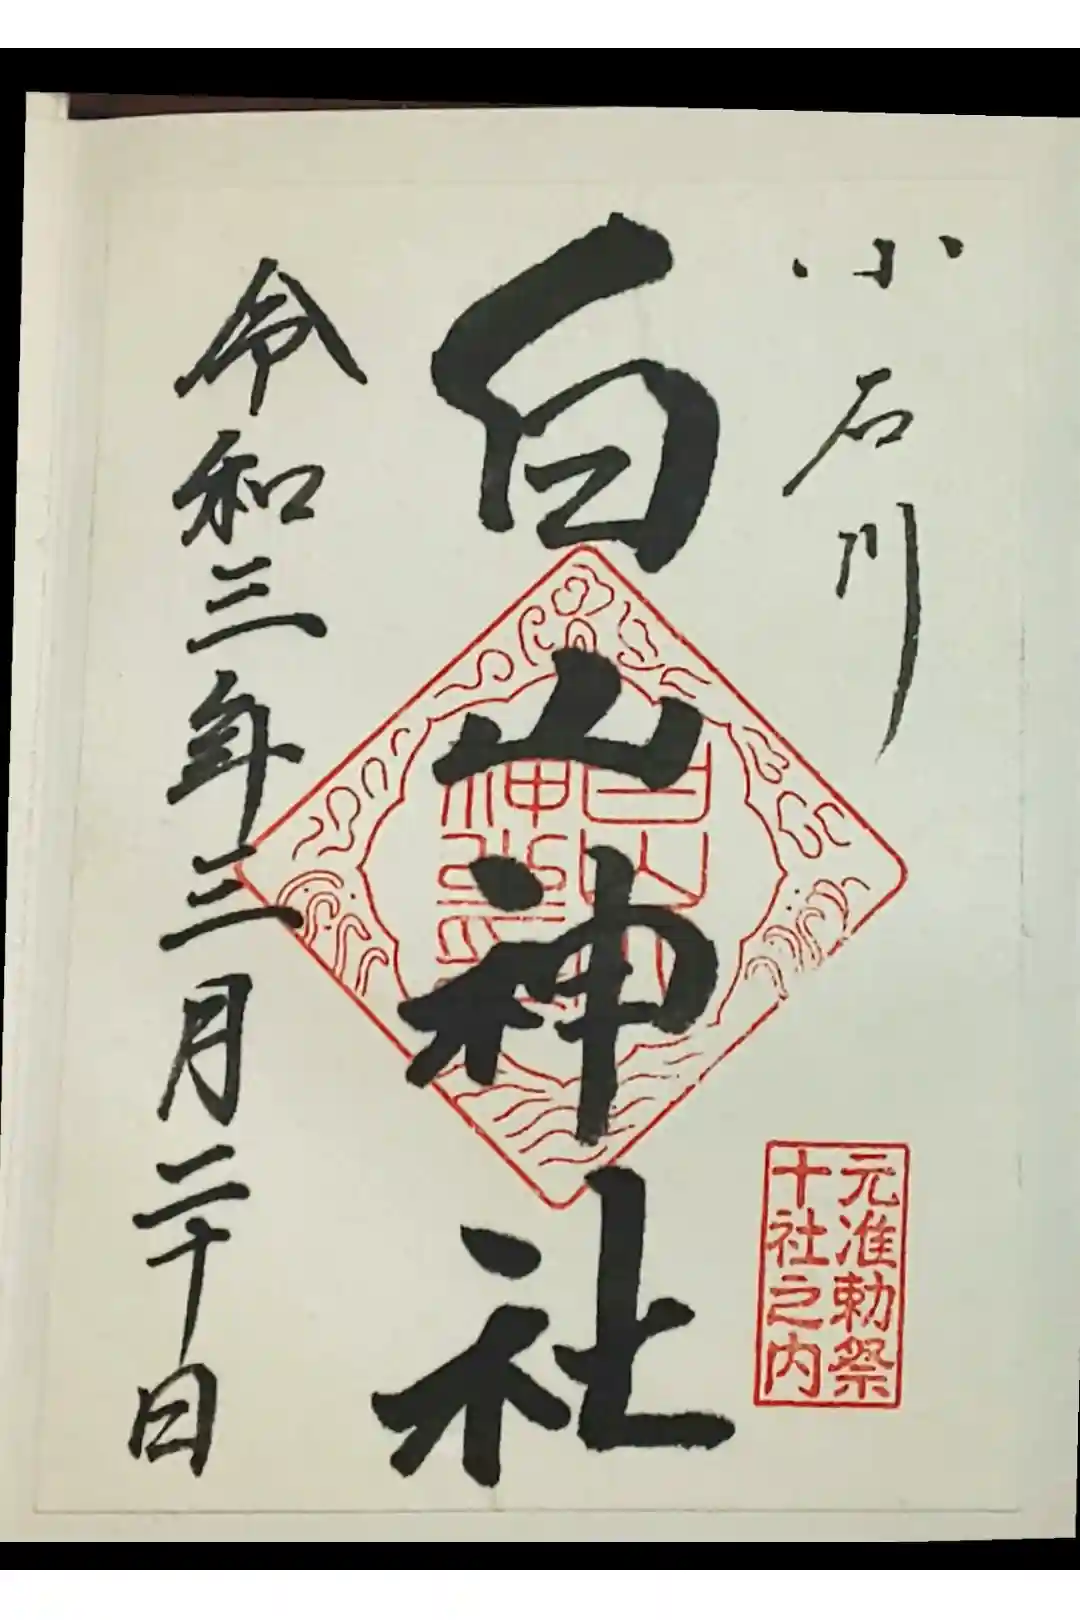 小石川
白山神社
令和三年三月二十日
白山
神社
元准勅祭
十社之内